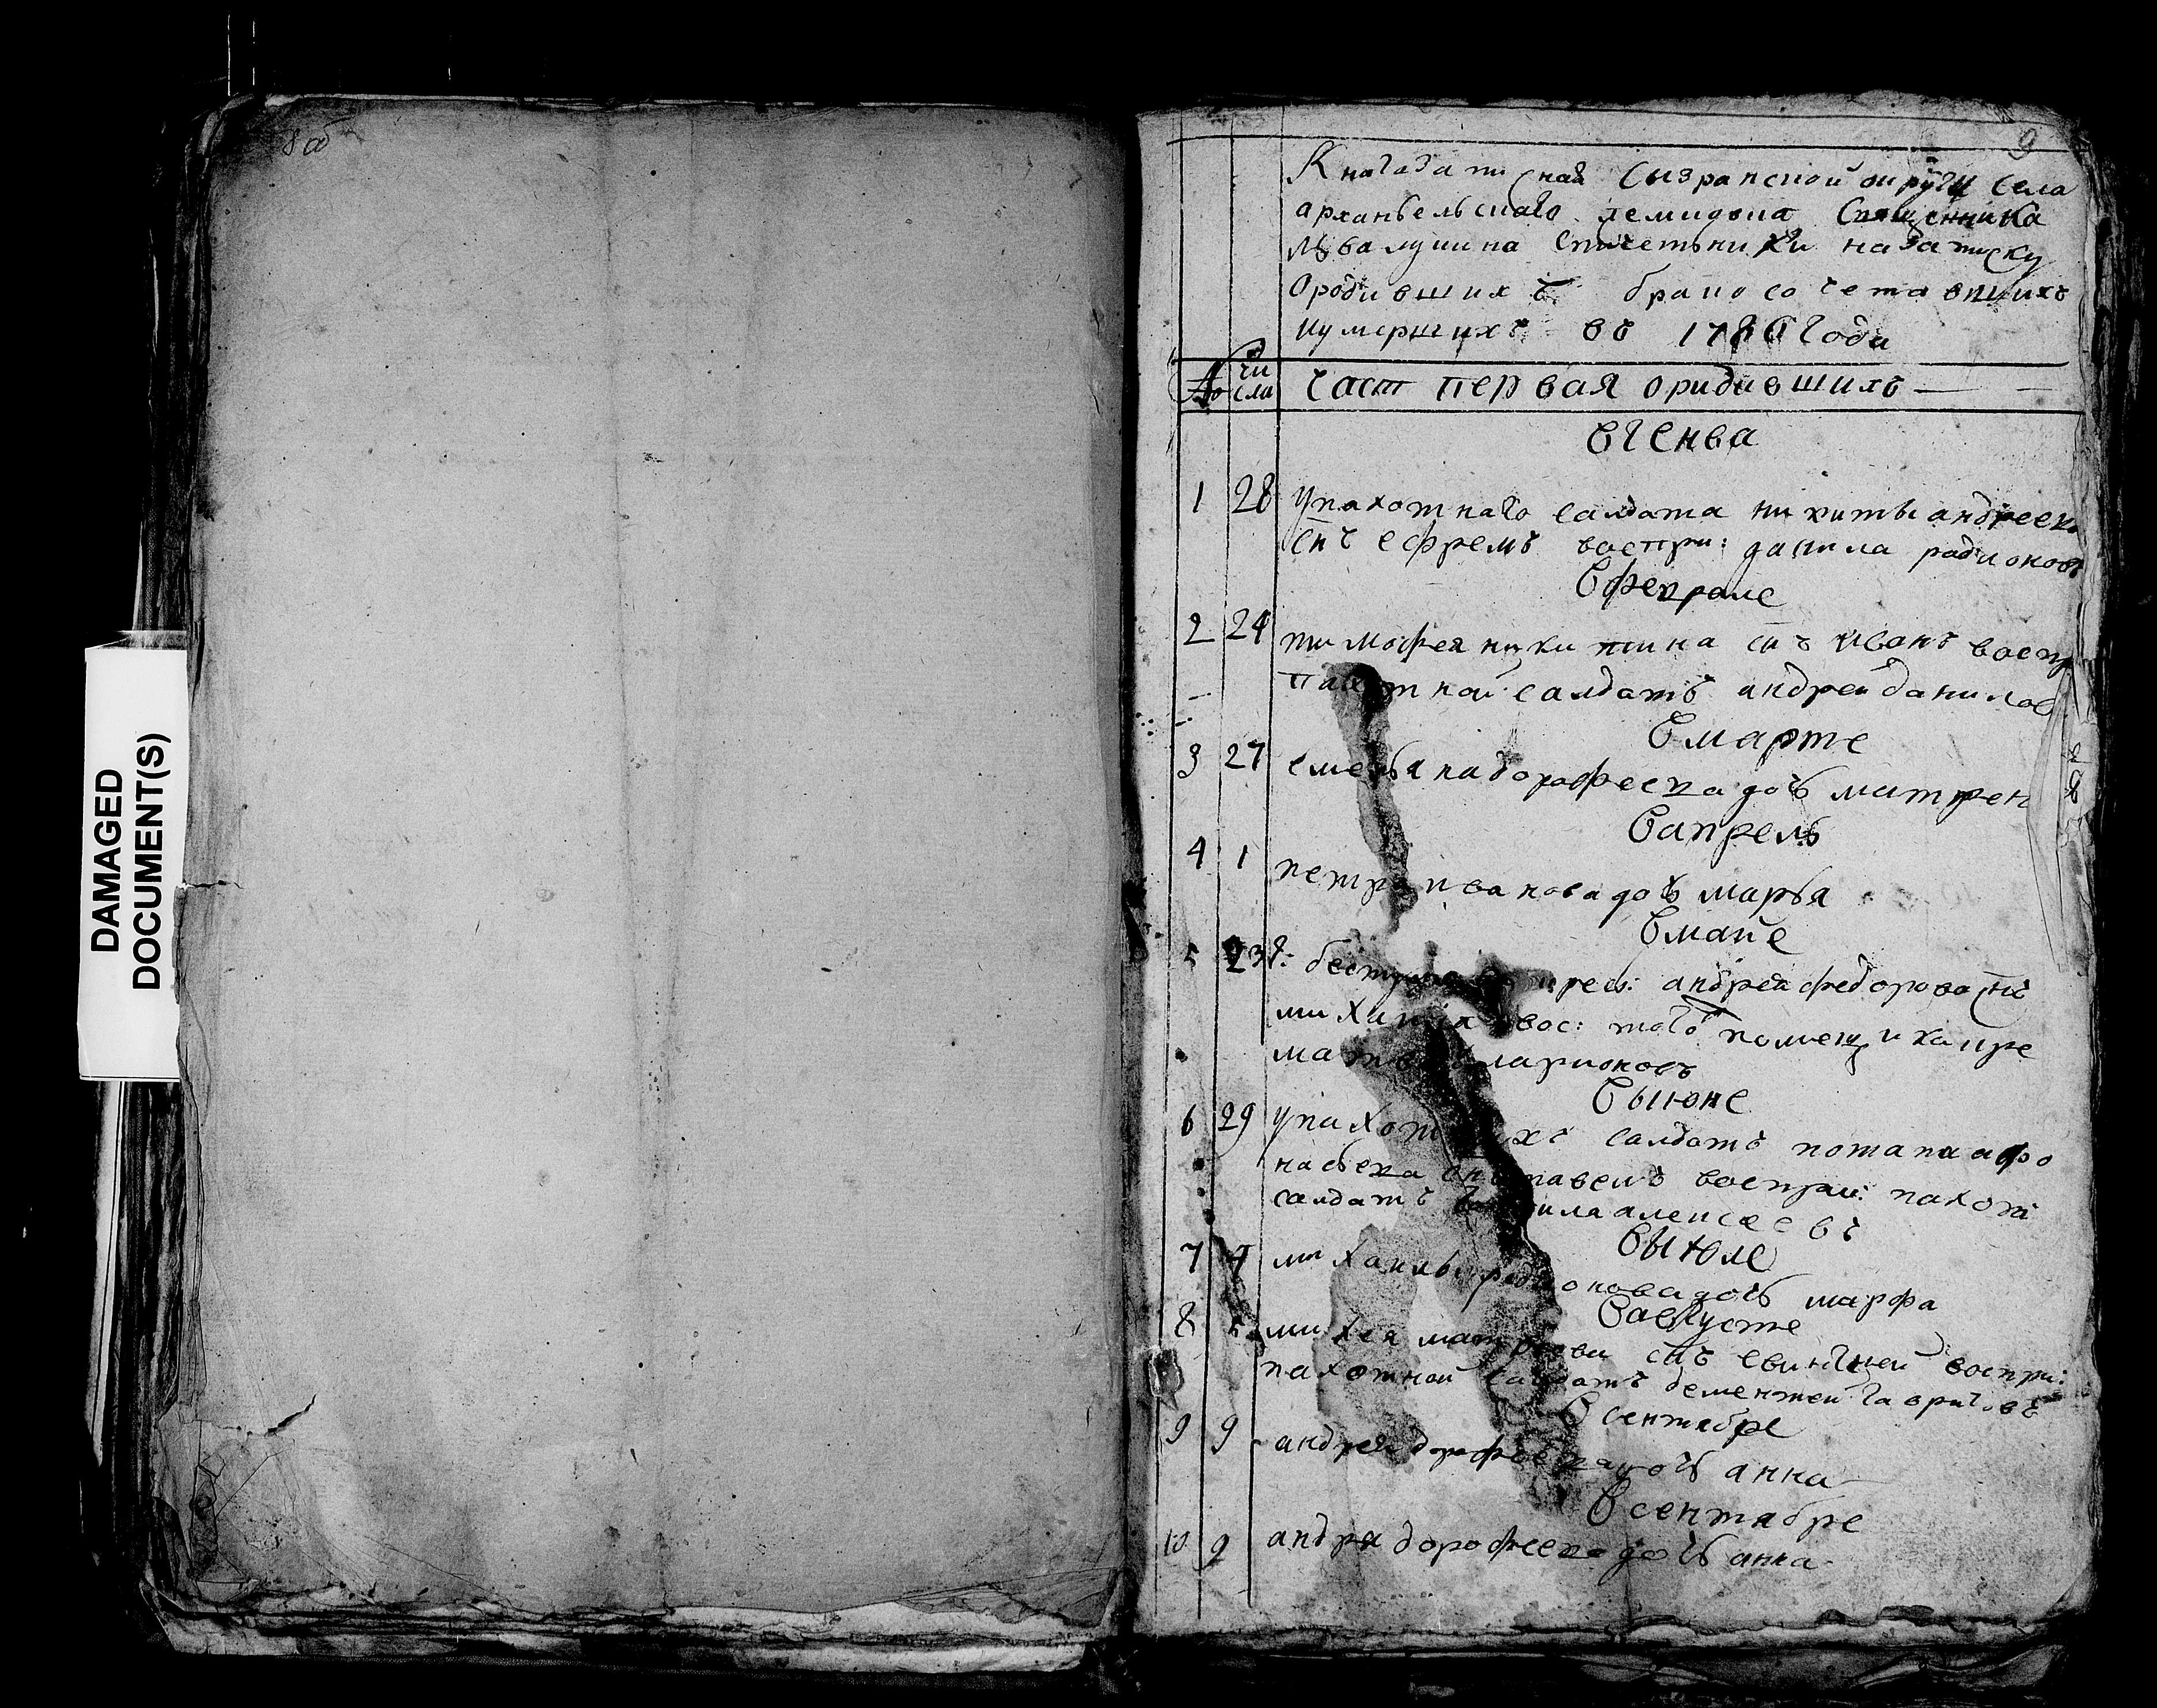 8 об
DAMAGED
DOCUMENT(S)
9
Книга записная Сызранской округи села
архангельскаго демидова Священника
Льва спричетники на записку
ородившихъ бракосочетавшихъ
иумершихъ въ 1786 Году
№ числа Част первая ородившихъ
вГенва
1 28 Упахотнаго салдата никиты андреева
снъ ефремъ воспри: данила радионовъ
Вфеврале
2 24 тимофея никитина снъ иванъ воспр
пахотной салдатъ андреи данилов
Вмарте
3 27 семена дорофеева дочь матрен
Вапрель
4 1 петра иванова дочь марья
Вмаие
5 23 Г: крес: андрея федорова снъ
михаила вос: того помещика кре
матвеи ларионовъ
Выюне
6 29 упахотныхъ салдатъ потапа афо
насьева снъ павелъ воспри: пахот
салдатъ гаврила алексеевъ
Выюле
7 4 михаилы родионова дочь марфа
Вавгусте
8 5 михея матвеева снъ евигней воспри:
пахотной салдатъ дементей гавриловъ
Всентябре
9 9 андрея дорофеева дочь анна
Всентабре
10 9 андря дорофеева дочь анна